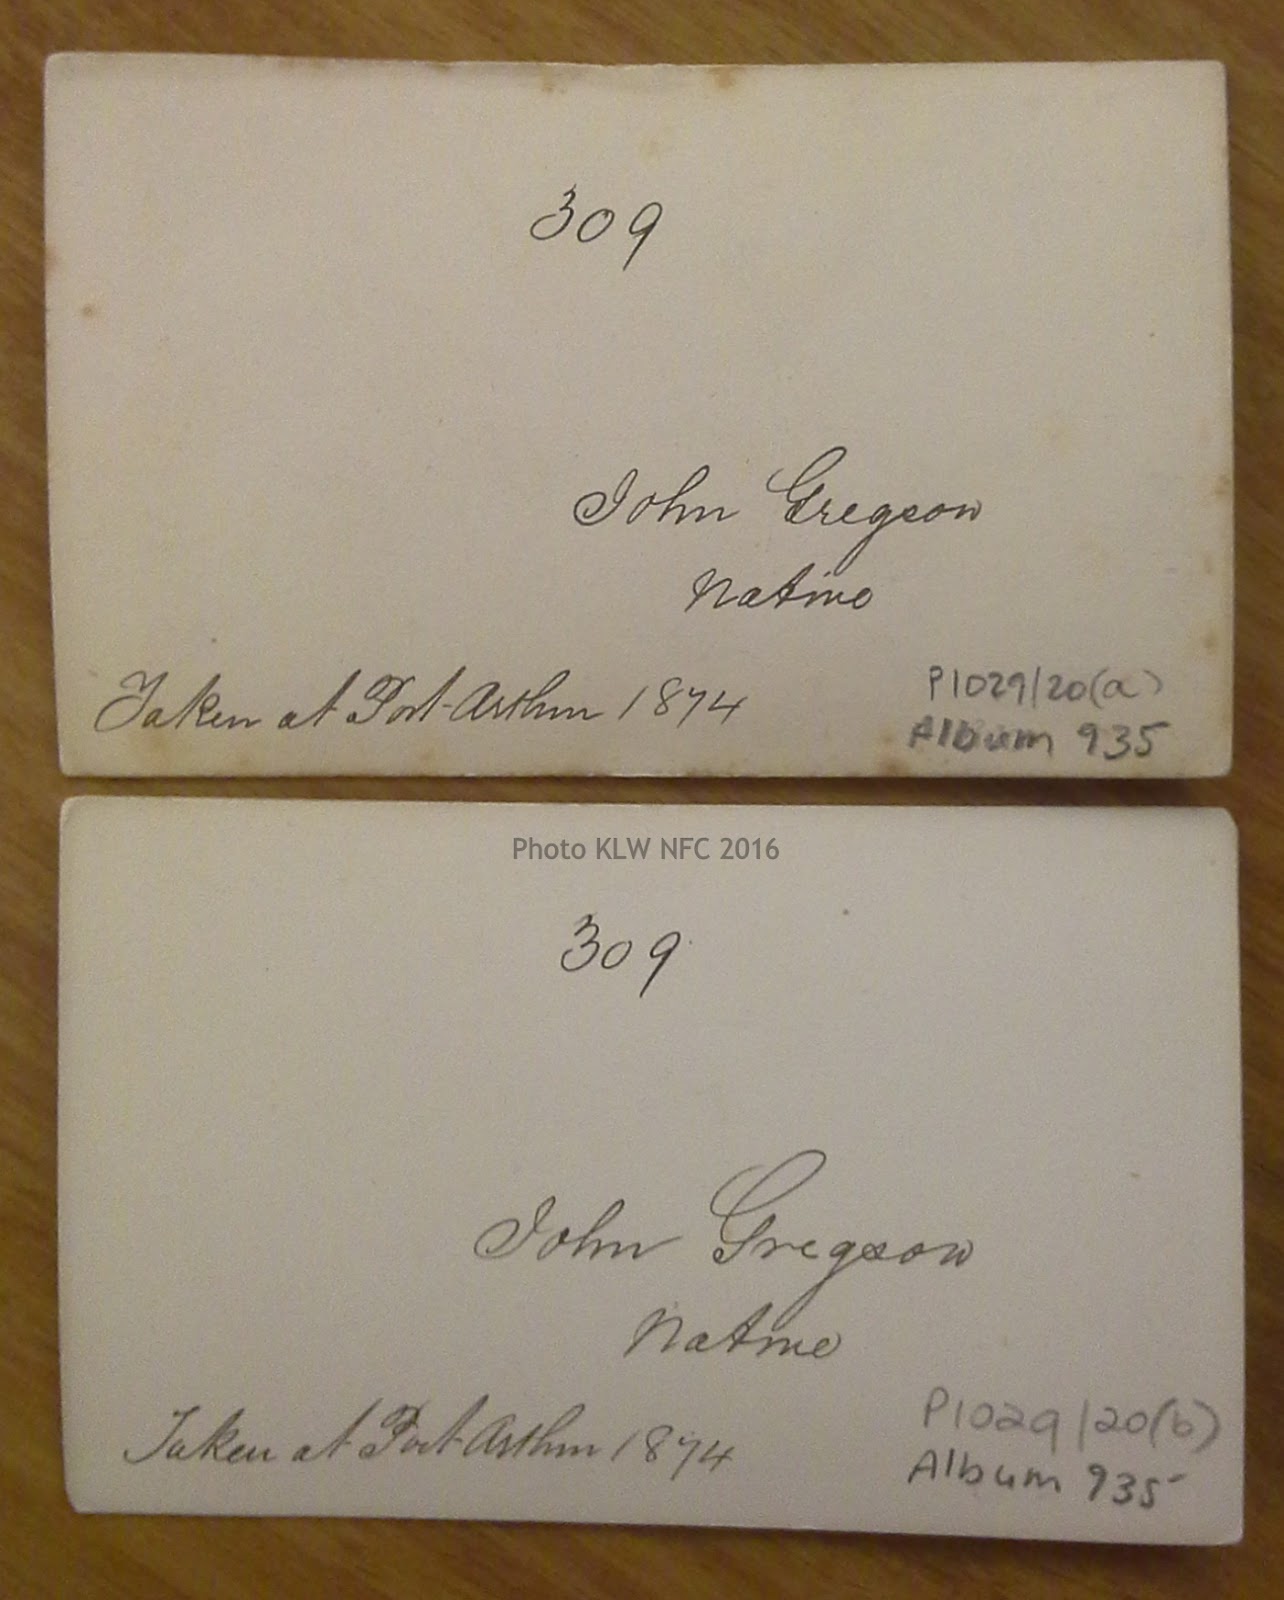 309
John Gregson
Native
Taken at Port Arthur 1874
P1029/20(a)
Album 935
Photo KLW NFC 2016
309
John Gregson
Native
Taken at Port Arthur 1874
P1029/20(b)
Album 935